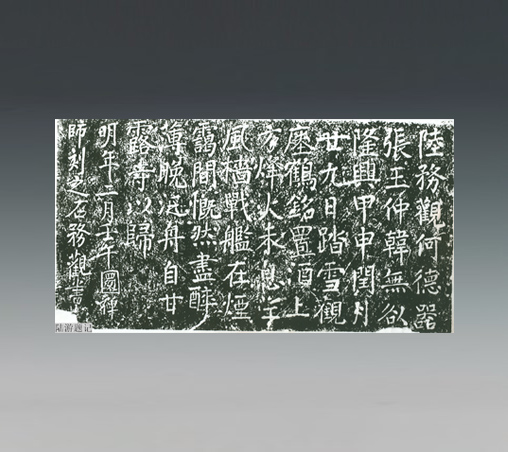 陸務觀何德器
張玉仲韓無咎
隆興甲申閏月
廿九日踏雪觀
瘞鶴銘置酒上
方烽火未息望
風檣戰艦在煙
靄間慨然盡醉
薄晚泛舟自甘
露寺以歸
明年二月壬午圜禪
師刻之石務觀書
陆游题记